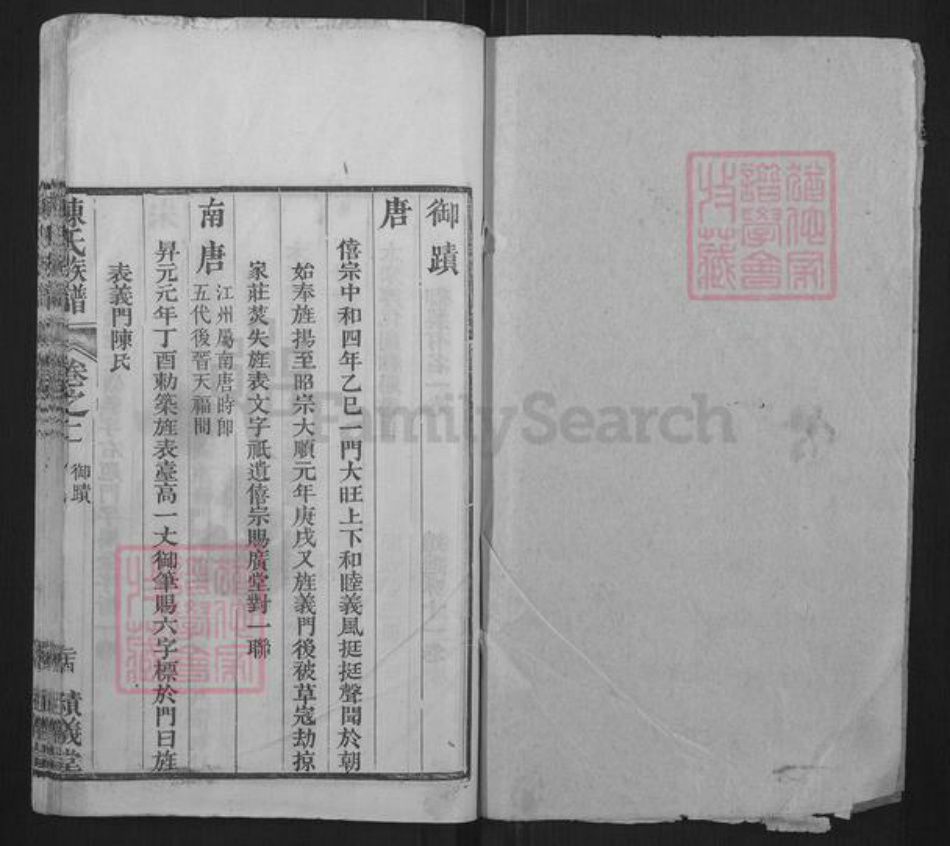 御蹟
唐
僖宗中和四年乙巳一門大旺上下和睦義風挺挺聲聞於朝
始奉旌揚至昭宗大順元年庚戌又旌義門後被草寇劫掠
家莊焚失旌表文字祇遺僖宗賜廣堂對一聯
南唐
江州屬南唐時卽
五代後晉天福間
昇元元年丁酉勅築旌表臺高一丈御筆賜六字標於門曰旌
表義門陳氏
陳氏族譜
卷之二
御蹟
績義堂
FamilySearch